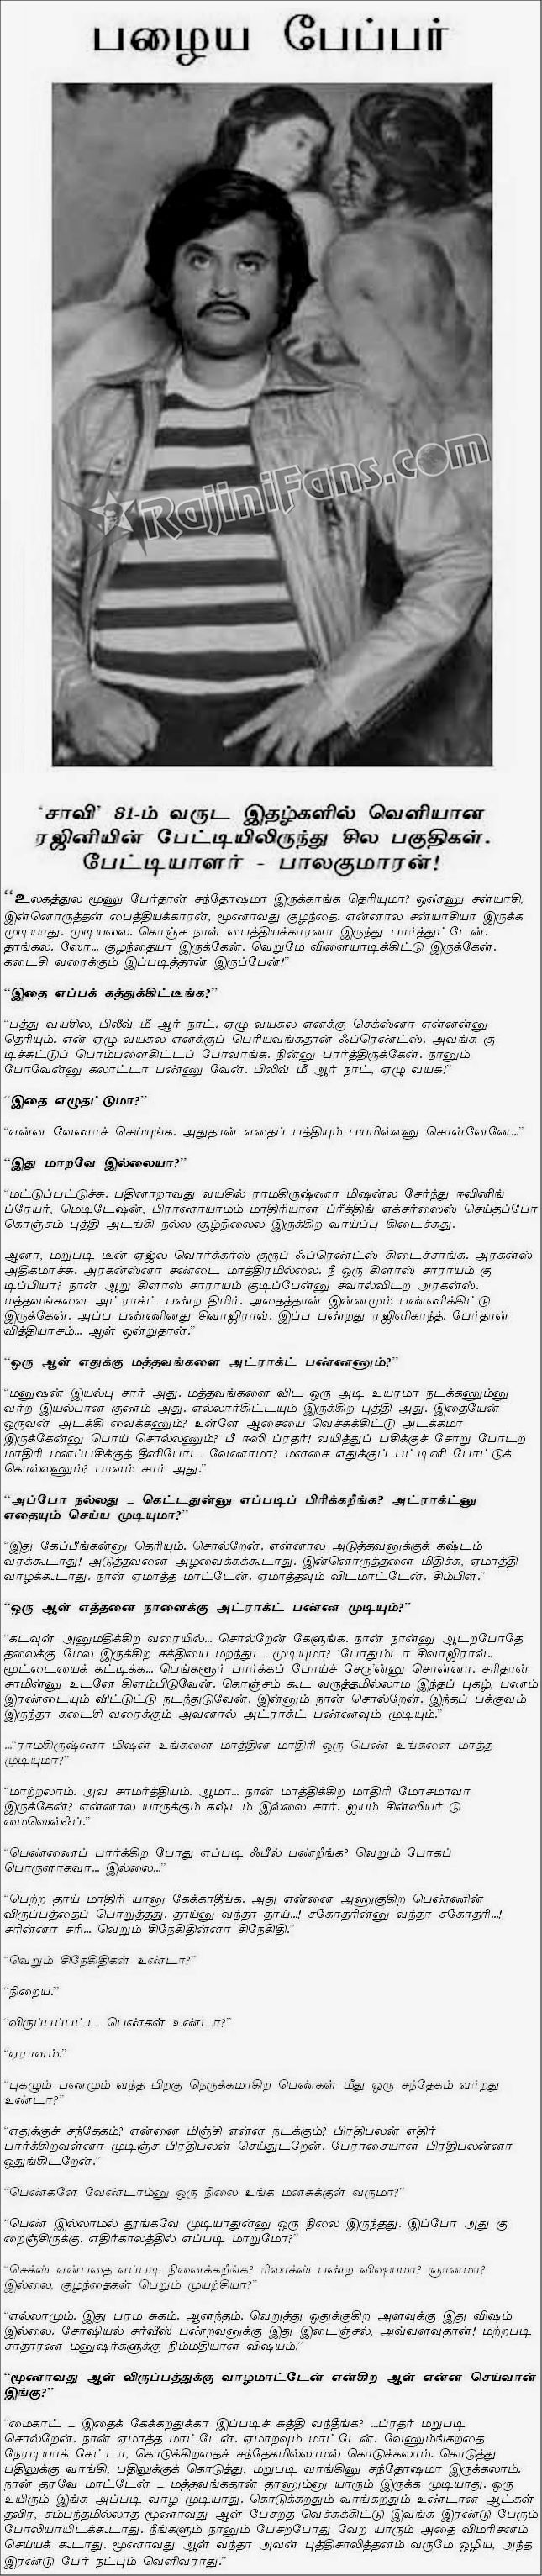 பழைய பேப்பர்
RajiniFans.com
‘சாவி’ 81-ம் வருட இதழ்களில் வெளியான
ரஜினியின் பேட்டியிலிருந்து சில பகுதிகள்.
பேட்டியாளர் - பாலகுமாரன்!
“உலகத்துல மூணு பேர்தான் சந்தோஷமா இருக்காங்க தெரியுமா? ஒண்ணு சன்யாசி,
இன்னொருத்தன் பைத்தியக்காரன், மூணாவது குழந்தை. என்னால சன்யாசியா இருக்க
முடியாது. முடியலை. கொஞ்ச நாள் பைத்தியக்காரனா இருந்து பார்த்துட்டேன்.
தாங்கல. ஸோ... குழந்தையா இருக்கேன். வெறுமே விளையாடிக்கிட்டு இருக்கேன்.
கடைசி வரைக்கும் இப்படித்தான் இருப்பேன்!”
“இதை எப்பக் கத்துக்கிட்டீங்க?”
“பத்து வயசில, பிலீவ் மீ ஆர் நாட். ஏழு வயசுல எனக்கு செக்ஸ்னா என்னன்னு
தெரியும். என் ஏழு வயசுல எனக்குப் பெரியவங்கதான் ஃப்ரெண்ட்ஸ். அவங்க கு
டிச்சுட்டுப் பொம்பளைகிட்டப் போவாங்க. நின்னு பார்த்திருக்கேன். நானும்
போவேன்னு கலாட்டா பண்ணு வேன். பிலிவ் மீ ஆர் நாட், ஏழு வயசு!”
“இதை எழுதட்டுமா?”
“என்ன வேணாச் செய்யுங்க. அதுதான் எதைப் பத்தியும் பயமில்லனு சொன்னேனே...”
“இது மாறவே இல்லையா?”
“மட்டுப்பட்டுச்சு. பதினாறாவது வயசில் ராமகிருஷ்ணா மிஷன்ல சேர்ந்து ஈவினிங்
ப்ரேயர், மெடிடேஷன், பிராணாயாமம் மாதிரியான ப்ரீத்திங் எக்சர்ஸைஸ் செய்தப்போ
கொஞ்சம் புத்தி அடங்கி நல்ல சூழ்நிலைல இருக்கிற வாய்ப்பு கிடைச்சுது.
ஆனா, மறுபடி டீன் ஏஜ்ல வொர்க்கர்ஸ் குரூப் ஃப்ரெண்ட்ஸ் கிடைச்சாங்க. அரகன்ஸ்
அதிகமாச்சு. அரகன்ஸ்னா சண்டை மாத்திரமில்லை. நீ ஒரு கிளாஸ் சாராயம் கு
டிப்பியா? நான் ஆறு கிளாஸ் சாராயம் குடிப்பேன்னு சவால்விடற அரகன்ஸ்.
மத்தவங்களை அட்ராக்ட் பண்ற திமிர். அதைத்தான் இன்னமும் பண்ணிக்கிட்டு
இருக்கேன். அப்ப பண்ணினது சிவாஜிராவ். இப்ப பண்றது ரஜினிகாந்த். பேர்தான்
வித்தியாசம்... ஆள் ஒன்றுதான்.”
“ஒரு ஆள் எதுக்கு மத்தவங்களை அட்ராக்ட் பண்ணணும்?”
“மனுஷன் இயல்பு சார் அது. மத்தவங்களை விட ஒரு அடி உயரமா நடக்கணும்னு
வர்ற இயல்பான குணம் அது. எல்லார்கிட்டயும் இருக்கிற புத்தி அது. இதையேன்
ஒருவன் அடக்கி வைக்கணும்? உள்ளே ஆசையை வெச்சுக்கிட்டு அடக்கமா
இருக்கேன்னு பொய் சொல்லணும்? பீ ஈஸி ப்ரதர்! வயித்துப் பசிக்குச் சோறு போடற
மாதிரி மனப்பசிக்குத் தீனிபோட வேணாமா? மனசை எதுக்குப் பட்டினி போட்டுக்
கொல்லணும்? பாவம் சார் அது.”
“அப்போ நல்லது _ கெட்டதுன்னு எப்படிப் பிரிக்கறீங்க? அட்ராக்ட்னு
எதையும் செய்ய முடியுமா?”
“இது கேப்பீங்கன்னு தெரியும். சொல்றேன். என்னால அடுத்தவனுக்குக் கஷ்டம்
வரக்கூடாது! அடுத்தவனை அழவைக்கக்கூடாது. இன்னொருத்தனை மிதிச்சு, ஏமாத்தி
வாழக்கூடாது. நான் ஏமாத்த மாட்டேன். ஏமாத்தவும் விடமாட்டேன். சிம்பிள்.”
“ஒரு ஆள் எத்தனை நாளைக்கு அட்ராக்ட் பண்ண முடியும்?”
“கடவுள் அனுமதிக்கிற வரையில்... சொல்றேன் கேளுங்க. நான் நான்னு ஆடறபோதே
தலைக்கு மேல இருக்கிற சக்தியை மறந்துட முடியுமா? ‘போதும்டா சிவாஜிராவ்..
மூட்டையைக் கட்டிக்க... பெங்களூர் பார்க்கப் போய்ச் சேரு’ன்னு சொன்னா. சரிதான்
சாமின்னு உடனே கிளம்பிடுவேன். கொஞ்சம் கூட வருத்தமில்லாம இந்தப் புகழ், பணம்
இரண்டையும் விட்டுட்டு நடந்துடுவேன். இன்னும் நான் சொல்றேன். இந்தப் பக்குவம்
இருந்தா கடைசி வரைக்கும் அவனால் அட்ராக்ட் பண்ணவும் முடியும்.”
...“ராமகிருஷ்ணா மிஷன் உங்களை மாத்தின மாதிரி ஒரு பெண் உங்களை மாத்த
முடியுமா?”
“மாற்றலாம். அவ சாமர்த்தியம். ஆமா... நான் மாத்திக்கிற மாதிரி மோசமாவா
இருக்கேன்? என்னால யாருக்கும் கஷ்டம் இல்லை சார். ஐயம் சின்ஸியர் டு
மைஸெல்ஃப்.”
“பெண்ணைப் பார்க்கிற போது எப்படி ஃபீல் பண்றீங்க? வெறும் போகப்
பொருளாகவா... இல்லை...”
“பெற்ற தாய் மாதிரி யானு கேக்காதீங்க. அது என்னை அணுகுகிற பெண்ணின்
விருப்பத்தைப் பொறுத்தது. தாய்னு வந்தா தாய்...! சகோதரின்னு வந்தா சகோதரி...!
சரின்னா சரி... வெறும் சிநேகிதின்னா சிநேகிதி.”
“வெறும் சிநேகிதிகள் உண்டா?”
“நிறைய.”
“விருப்பப்பட்ட பெண்கள் உண்டா?”
“ஏராளம்.”
“புகழும் பணமும் வந்த பிறகு நெருக்கமாகிற பெண்கள் மீது ஒரு சந்தேகம் வர்றது
உண்டா?”
“எதுக்குச் சந்தேகம்? என்னை மிஞ்சி என்ன நடக்கும்? பிரதிபலன் எதிர்
பார்க்கிறவள்னா முடிஞ்ச பிரதிபலன் செய்துடறேன். பேராசையான பிரதிபலன்னா
ஒதுங்கிடறேன்.”
“பெண்களே வேண்டாம்னு ஒரு நிலை உங்க மனசுக்குள் வருமா?”
“பெண் இல்லாமல் தூங்கவே முடியாதுன்னு ஒரு நிலை இருந்தது. இப்போ அது கு
றைஞ்சிருக்கு. எதிர்காலத்தில் எப்படி மாறுமோ?”
“செக்ஸ் என்பதை எப்படி நினைக்கறீங்க? ரிலாக்ஸ் பண்ற விஷயமா? ஞானமா?
இல்லை, குழந்தைகள் பெறும் முயற்சியா?”
“எல்லாமும். இது பரம சுகம். ஆனந்தம். வெறுத்து ஒதுக்குகிற அளவுக்கு இது விஷம்
இல்லை. சோஷியல் சர்வீஸ் பண்றவனுக்கு இது இடைஞ்சல், அவ்வளவுதான்! மற்றபடி
சாதாரண மனுஷர்களுக்கு நிம்மதியான விஷயம்.”
“மூணாவது ஆள் விருப்பத்துக்கு வாழமாட்டேன் என்கிற ஆள் என்ன செய்வான்
இங்கு?”
“மைகாட் _ இதைக் கேக்கறதுக்கா இப்படிச் சுத்தி வந்தீங்க? ...ப்ரதர் மறுபடி
சொல்றேன். நான் ஏமாத்த மாட்டேன். ஏமாறவும் மாட்டேன். வேணும்ங்கறதை
நேரடியாக் கேட்டா, கொடுக்கிறதைச் சந்தேகமில்லாமல் கொடுக்கலாம். கொடுத்து
பதிலுக்கு வாங்கி, பதிலுக்குக் கொடுத்து, மறுபடி வாங்கினு சந்தோஷமா இருக்கலாம்.
நான் தரவே மாட்டேன் _ மத்தவங்கதான் தரணும்னு யாரும் இருக்க முடியாது. ஒரு
உயிரும் இங்க அப்படி வாழ முடியாது. கொடுக்கறதும் வாங்கறதும் உண்டான ஆட்கள்
தவிர, சம்பந்தமில்லாத மூணாவது ஆள் பேசறத வெச்சுக்கிட்டு இவங்க இரண்டு பேரும்
போலியாயிடக்கூடாது. நீங்களும் நானும் பேசறபோது வேற யாரும் அதை விமரிசனம்
செய்யக் கூடாது. மூணாவது ஆள் வந்தா அவன் புத்திசாலித்தனம் வருமே ஒழிய, அந்த
இரண்டு பேர் நட்பும் வெளிவராது.”